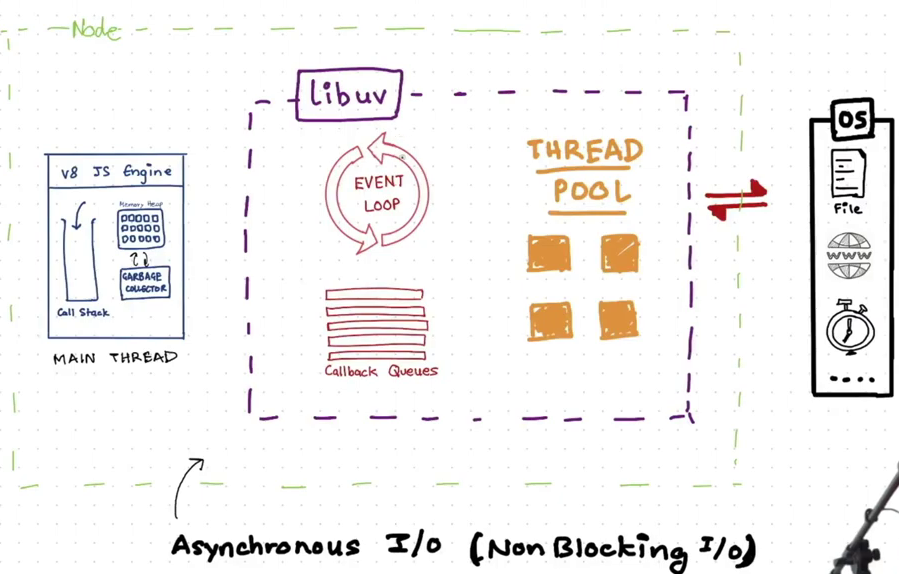 Node
libuv
V8 JS Engine
Memory Heap
GARBAGE
COLLECTOR
Call Stack
MAIN THREAD
EVENT
LOOP
Callback Queues
THREAD
POOL
OS
File
WWW
Asynchronous I/O (Non Blocking I/O)